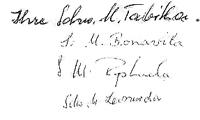 Ihre Schw. M. Tabitha.
S. M. Bonavita
S. M.
Schw. M. Leonarda